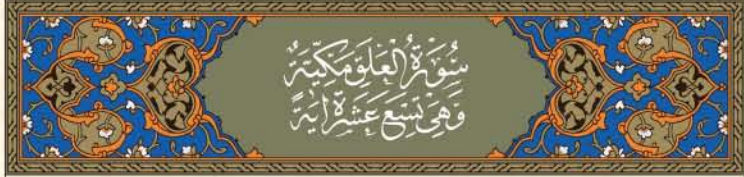 سُورَةُ الْعَلَقِ مَكِّيَّةٌ
وَهِيَ تِسْعَ عَشْرَةَ اٰيَةً